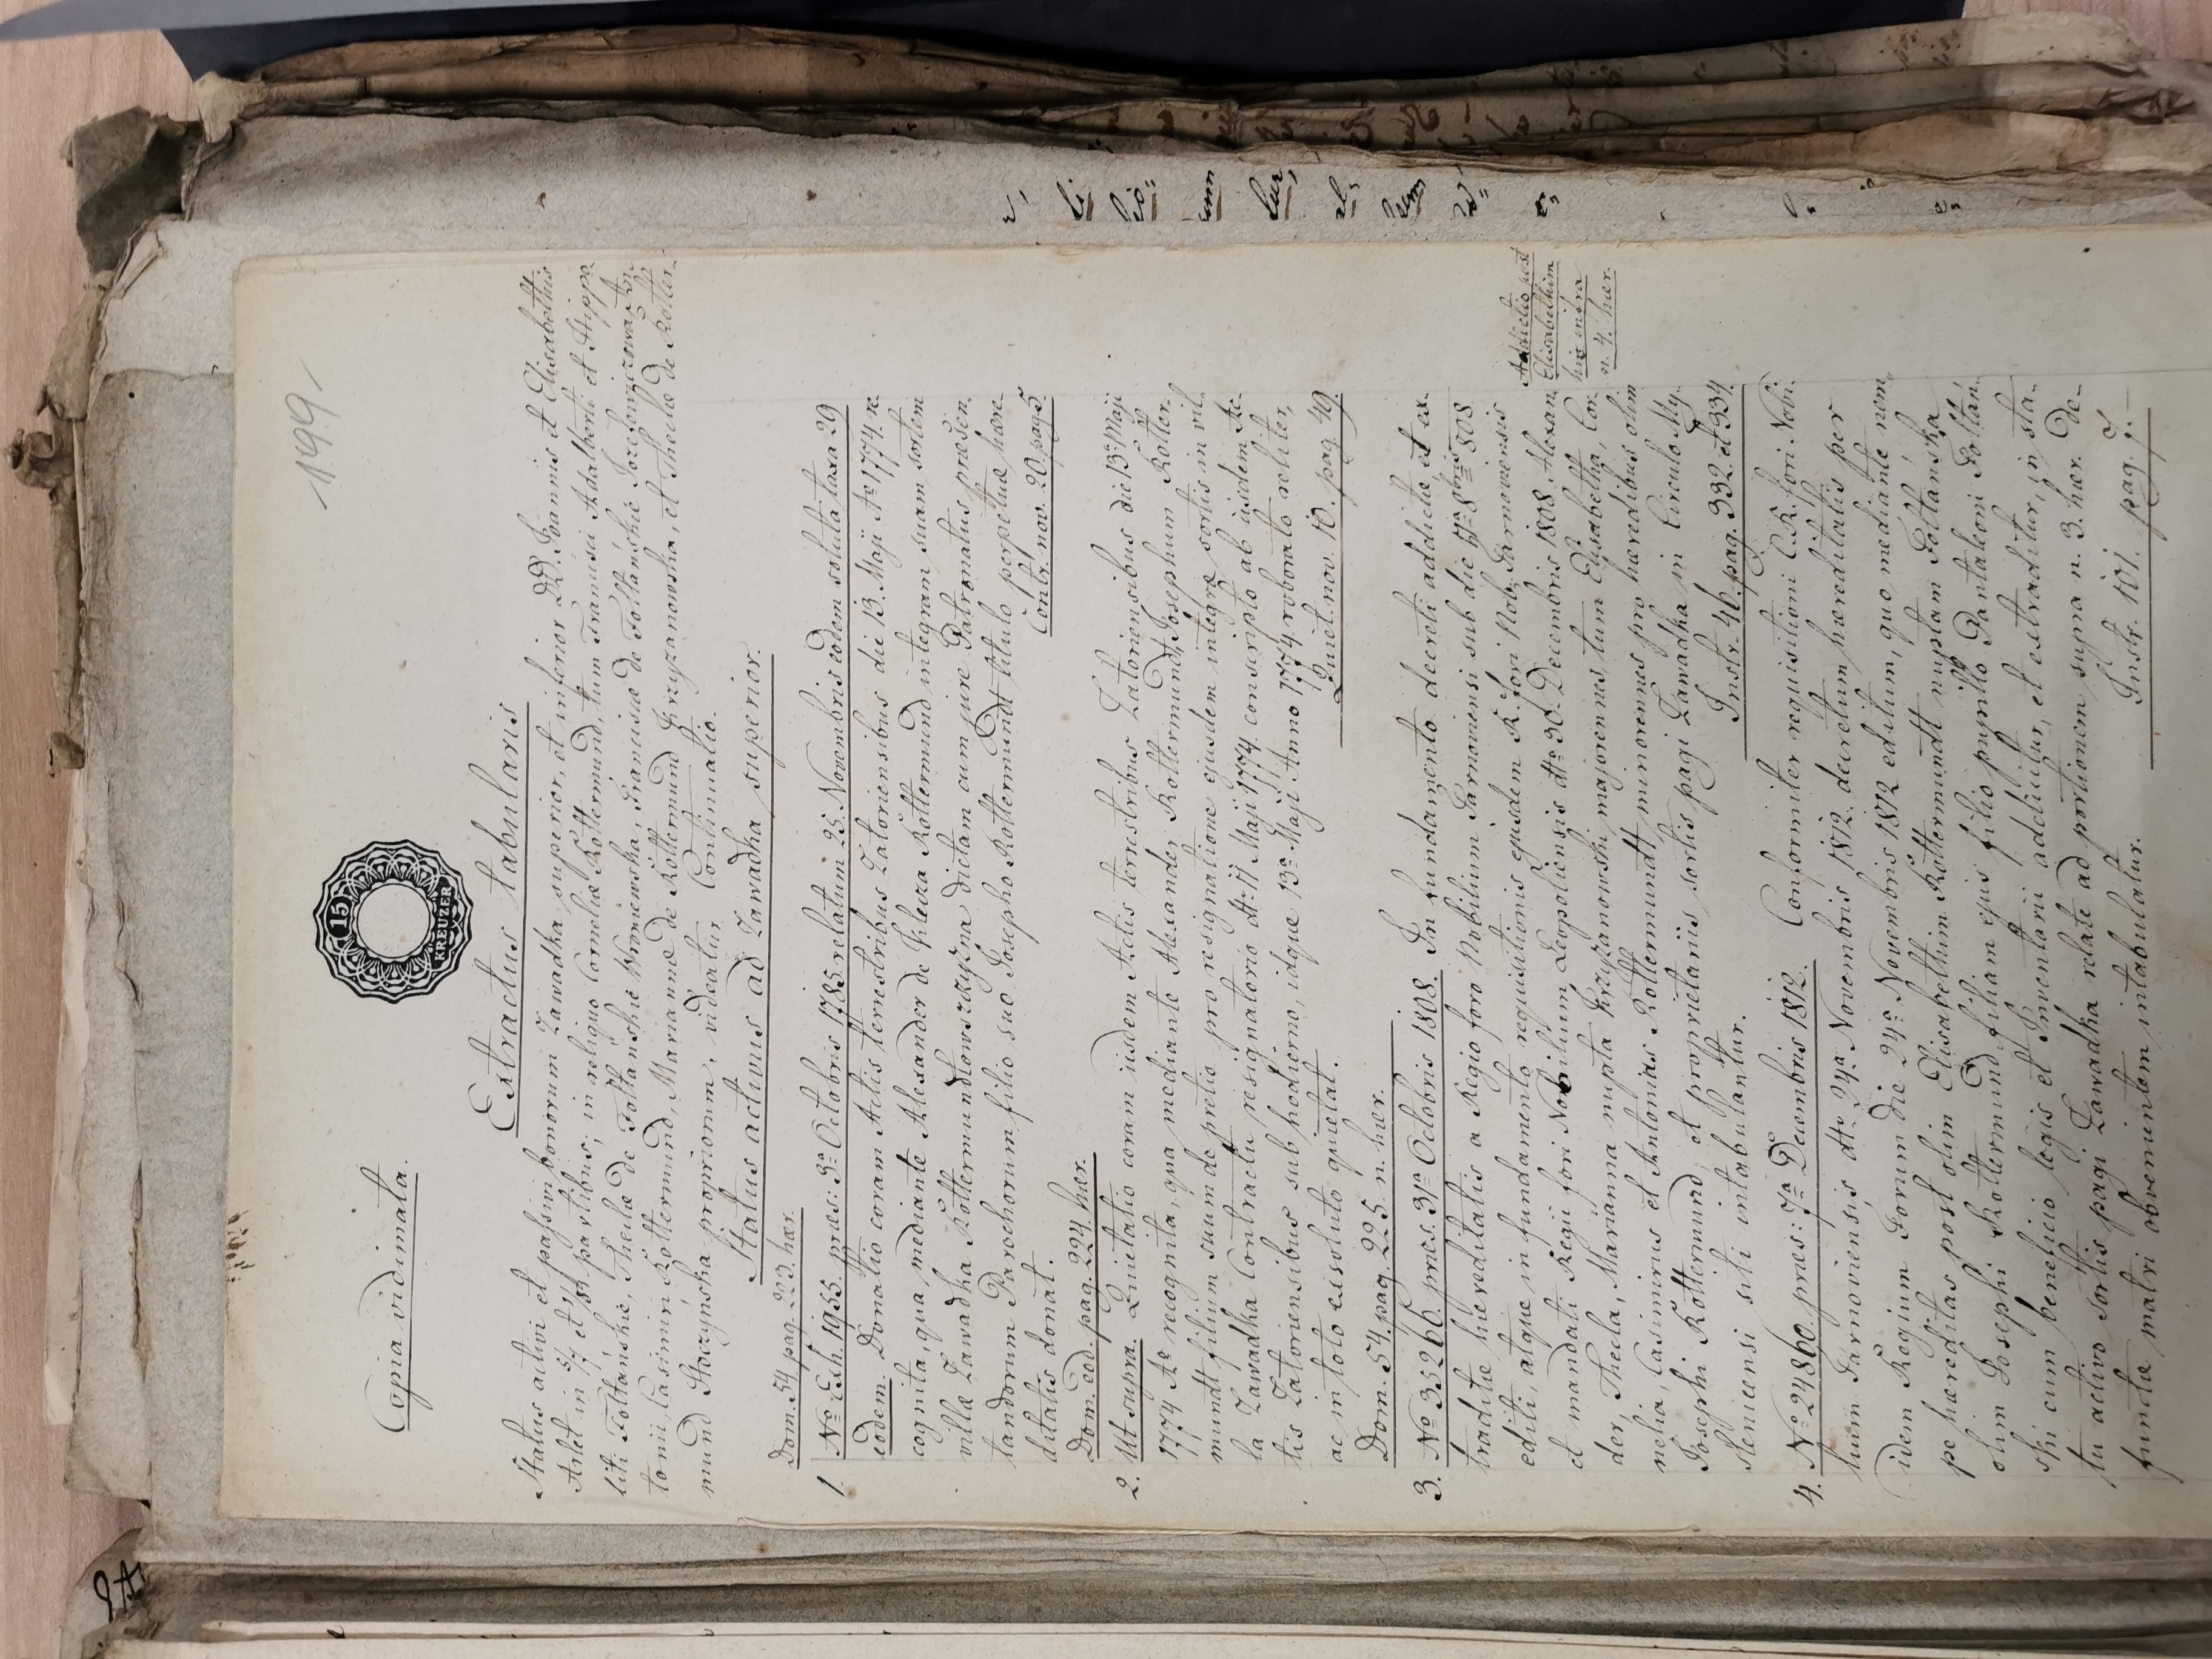 199
Copia vidimata.
15
KREUZER
Extractus tabularis
Status activi et passivi bonorum Zawadka superior, et inferior DD. Joannis et Elisabethis
Arlet in 5/7 et partibus, in reliquo Corneliæ Rottermund, tum Francisci Adalberti et Hippo
liti Foltańskie, Theclæ de Foltańskie Wroniewska, Franciscæ de Foltańskie Jozefowiczowa, An
tonii, Casimiri Rottermund, Mariannæ de Rottermund Krzyzanowska, et Theclæ de Rotter
mund Skoczyńska propriorum, videatur Continuatio.
Status activus ad Zawadka superior.
Dom. 54 pag. 223. hær.
1. No Exh. 1955. præs: 3a Octobris 1785 relatum 25. Novembris eodem soluta taxa 29
eodem. Donatio coram Actis terrestribus Zatoriensibus die 13. Maji Ao 1774. re
cognita, qua mediante Alexander de Kleza Rottermund integram suam sortem
villæ Zawadka Rottermundtowszczyzna dictam cum jure Patronatus præsen
tandorum Parochorum filio suo Josepho Rottermundt titulo perpetuæ hære
ditatis donat.
Contr. nov. 20. pag 5.
Dom. eod. pag. 224. hær.
2. Ut supra. Quietatio coram iisdem Actis terrestribus Zatoriensibus die 13a Maji
1774 Ao recognita, qua mediante Alexander Rottermundt Josephum Rotter
mundt filium suum de pretio pro resignatione ejusdem integræ sortis in vil
la Zawadka Contractu resignatorio dto 11 Maji 1774. conscripto ab iisdem Ac
tis Zatoriensibus sub hodierno, idque 13a Maji Anno 1774 roborato realiter,
ac in toto exsoluto quietat.
Quiet. nov. 10. pag. 49.
Dom. 54. pag. 225. n. hær.
3. No 35266. præs. 31a Octobris 1808. In fundamento decreti addictæ et ex
traditæ hæreditatis a Regio foro Nobilium Tarnoviensi sub die 808
editi, atque in fundamento requisitionis ejusdem R. fori Nob. Tarnoviensis
et mandati Regii fori Nobilium Leopoliensis dto 30. Decembris 1808 Alexan
der, Thecla, Marianna nupta Krzyzanowski majorennes tum Elisabetha, Cor
nelia, Casimirus et Antonius Rottermundt minorennes pro hæredibus olim
Josephi Rottermund, et proprietariis sortis pagi Zawadka in Circulo My
slenicensi siti intabulantur.
Instr. 46. pag. 332. et 334.
Addictio post
Elisabetham
hic infra
n. 4. hær.
4. No 24860. præs: 7a Decembris 1812. Conformiter requisitioni C. R. fori Nobi
lium Tarnoviensis dto 24a Novembris 1812. decretum hæreditatis per
idem Regium Forum die 24a Novembris 1812 editum, quo mediante nem
pe hæreditas post olim Elisabetham Rottermundt nuptam Foltańska
olim Josephi Rottermund filiam ejus filio pupillo Pantaleoni Foltań
ski cum beneficio legis et Inventarii addicitur, et extraditur, in sta
tu activo sortis pagi Zawadka relate ad portionem supra n. 3. hær. de
functæ matri obvenientem intabulatur.
Instr. 101. pag. 7.